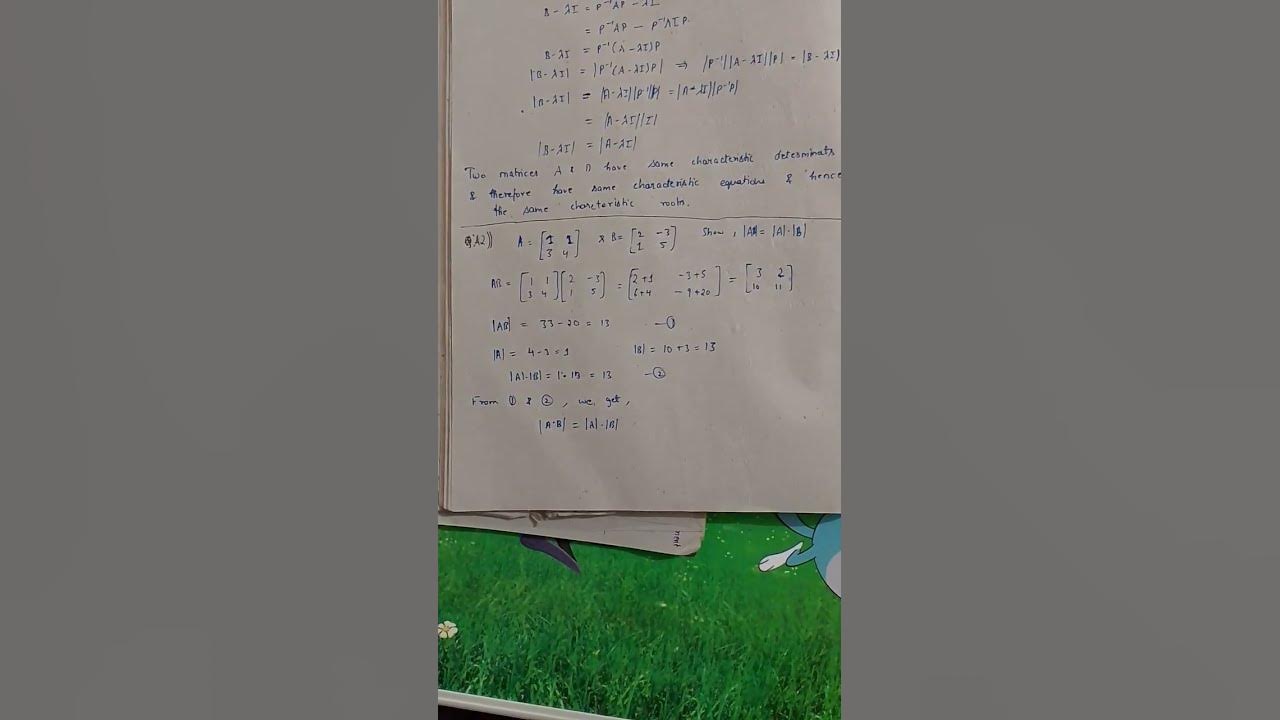 B - λI = P⁻¹AP - λI
= P⁻¹AP - P⁻¹λIP
B-λI = P⁻¹(A-λI)P
|B-λI| = |P⁻¹(A-λI)P| ⇒ |P⁻¹||A-λI||P| = |B-λI|
|B-λI| = |A-λI||P⁻¹||P| = |A-λI||P⁻¹P|
= |A-λI||I|
|B-λI| = |A-λI|
Two matrices A & B have same characteristic determinats
& therefore have same characteristic equations & hence
the same charcteristic roots.
A2)) A = [1 1; 3 4] & B = [2 -3; 1 5] Show, |AB| = |A|·|B|
AB = [1 1; 3 4] [2 -3; 1 5] = [2+1 -3+5; 6+4 -9+20] = [3 2; 10 11]
|AB| = 33-20 = 13 —①
|A| = 4-3 = 1 |B| = 10+3 = 13
|A|·|B| = 1·13 = 13 —②
From ① & ②, we get,
|A·B| = |A|·|B|